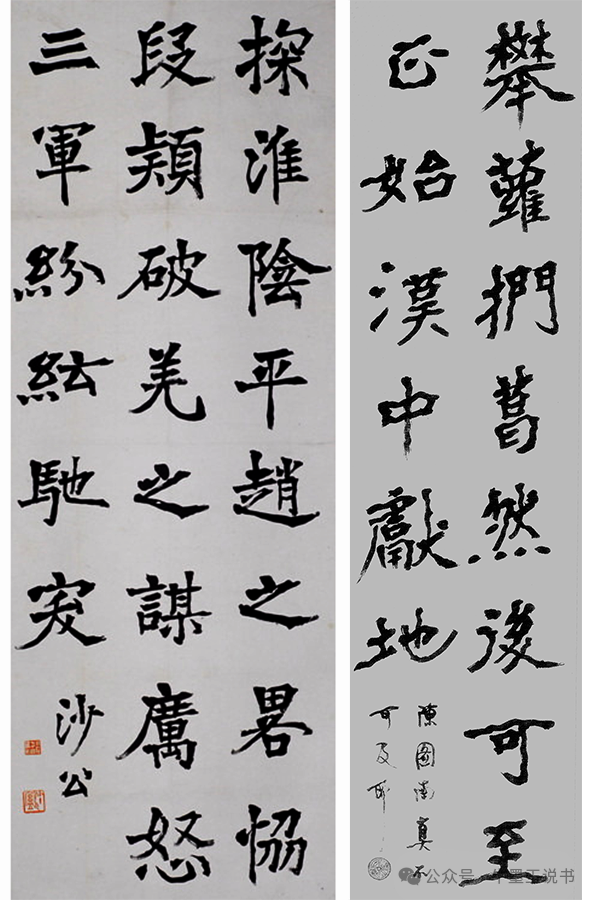 探淮陰平趙之畧恊
段熲破羌之謀厲怒
三軍紛紜馳突
沙公
攀蘿捫葛然後可至
正始漢中獻地
陳圖南真不
可及
公众号 墨工说书